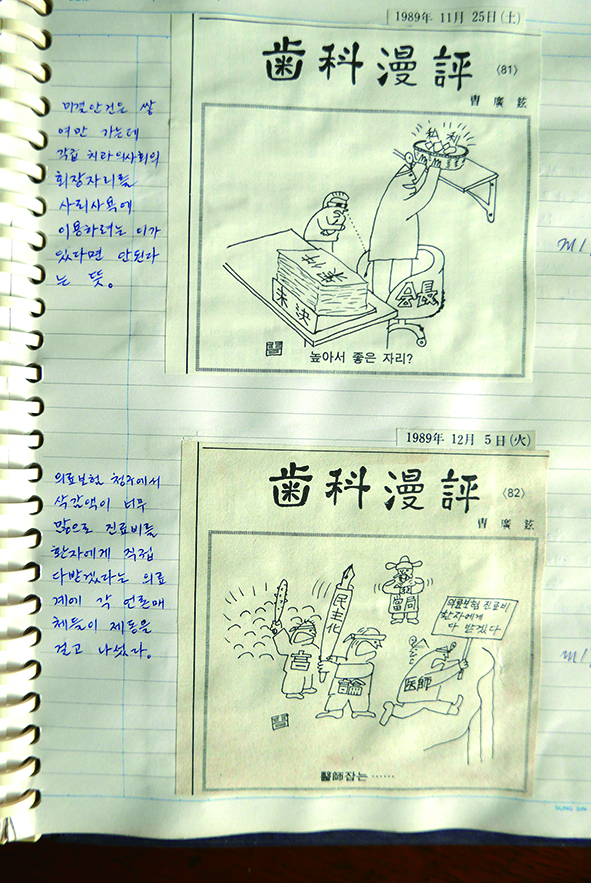 1989年 11月 25日(土)
歯科漫評 〈81〉
曺廣鉉
미결안건은 쌓
여만 가는데
각급 치과의사회의
회장자리를
사리사욕에
이용하려는 이가
있다면 안된다
는 뜻。
私利
案件
未決
会長
높아서 좋은 자리?
1989年 12月 5日(火)
歯科漫評 〈82〉
曺廣鉉
의료보험 청구에서
삭감액이 너무
많으므로 진료비를
환자에게 직접
다받겠다는 의료
계에 각 언론매
체들이 제동을
걸고 나섰다。
民主化
當局
의료보험 진료비
환자에게
다 받겠다
言
論
医師
醫師잡는 ……